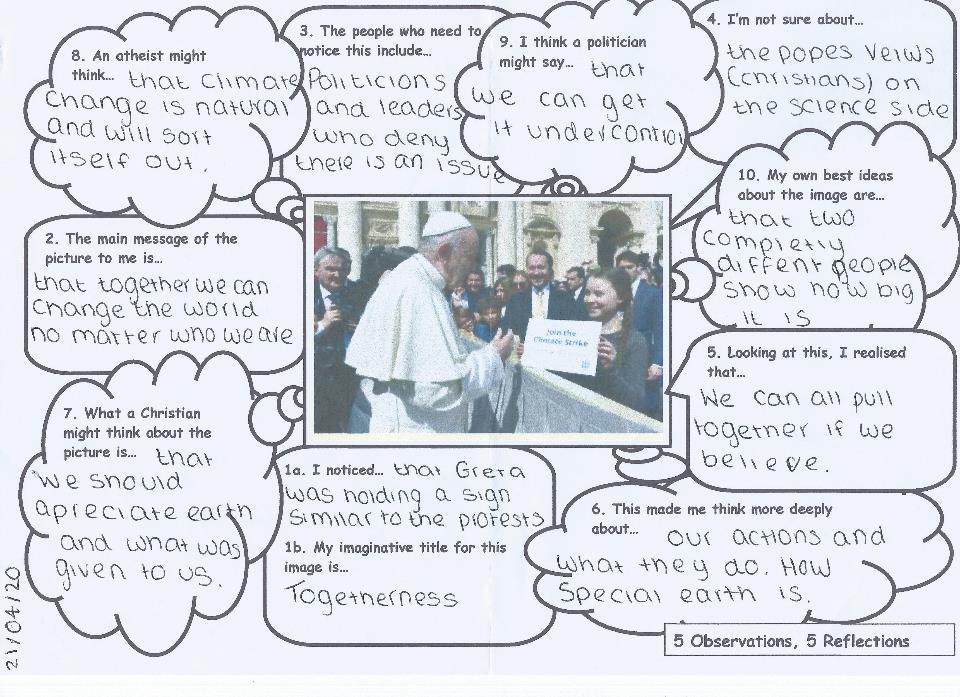 8. An atheist might
think... that Climate
Change is natural
and will sort
itself out.
3. The people who need to
notice this include...
Politicions
and leaders
who deny
there is an issue
9. I think a politician
might say... that
we can get
it under control
4. I'm not sure about...
the popes veiws
(christians) on
the science side
10. My own best ideas
about the image are...
that two
completly
diffent people
show how big
it is
2. The main message of the
picture to me is...
that together we can
change the world
no matter who we are
Join the
Climate Strike
5. Looking at this, I realised
that...
We can all pull
together if we
believe.
7. What a Christian
might think about the
picture is... that
we should
apreciate earth
and what was
given to us.
1a. I noticed... that Greta
was holding a sign
similar to the protests
1b. My imaginative title for this
image is...
Togetherness
6. This made me think more deeply
about... our actions and
what they do. How
special earth is.
5 Observations, 5 Reflections
21/04/20